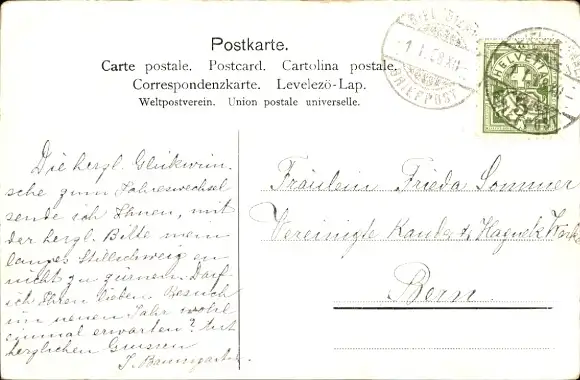 Postkarte.
Carte postale. Postcard. Cartolina postale.
Correspondenzkarte. Levelező-Lap.
Weltpostverein. Union postale universelle.
BRIEFPOST
HELVETIA
5
Die herzl. Glückwün-
sche zum Jahreswechsel
sende ich Ihnen, mit
der herzl. Bitte mein
langes Stillschweigen
nicht zu zürnen. Darf
ich Ihren lieben Besuch
im neuen Jahr wohl
einmal erwarten? Mit
herzlichen Grüssen
Fräulein Frieda Sommer
Vereinigte
Bern.